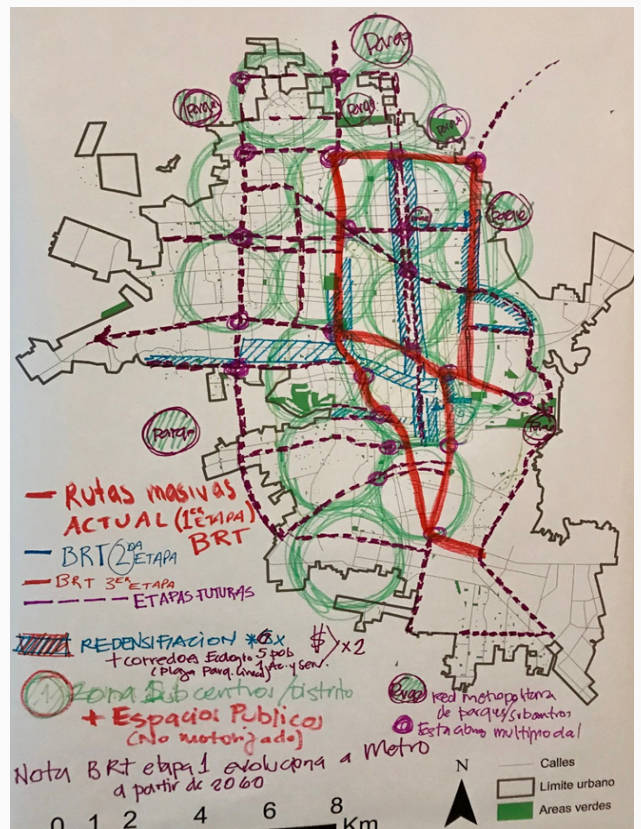 Parq
Parq
Parq
Parq
Parque
Parq
Rutas masivas
ACTUAL (1ER ETAPA)
BRT
BRT 2DA ETAPA
BRT 3ER ETAPA
ETAPAS FUTURAS
REDENSIFIACION
$ > x2
+ corredor
Zona Subcentros/distrito
+ Espacios Publicos
(No motorizado)
Parq
Red metropolitana
de parques/subcentros
multimodal
Nota BRT etapa 1 evoluciona a Metro
a partir de 2060
N
Calles
Límite urbano
Areas verdes
0 1 2 4 6 8
Km